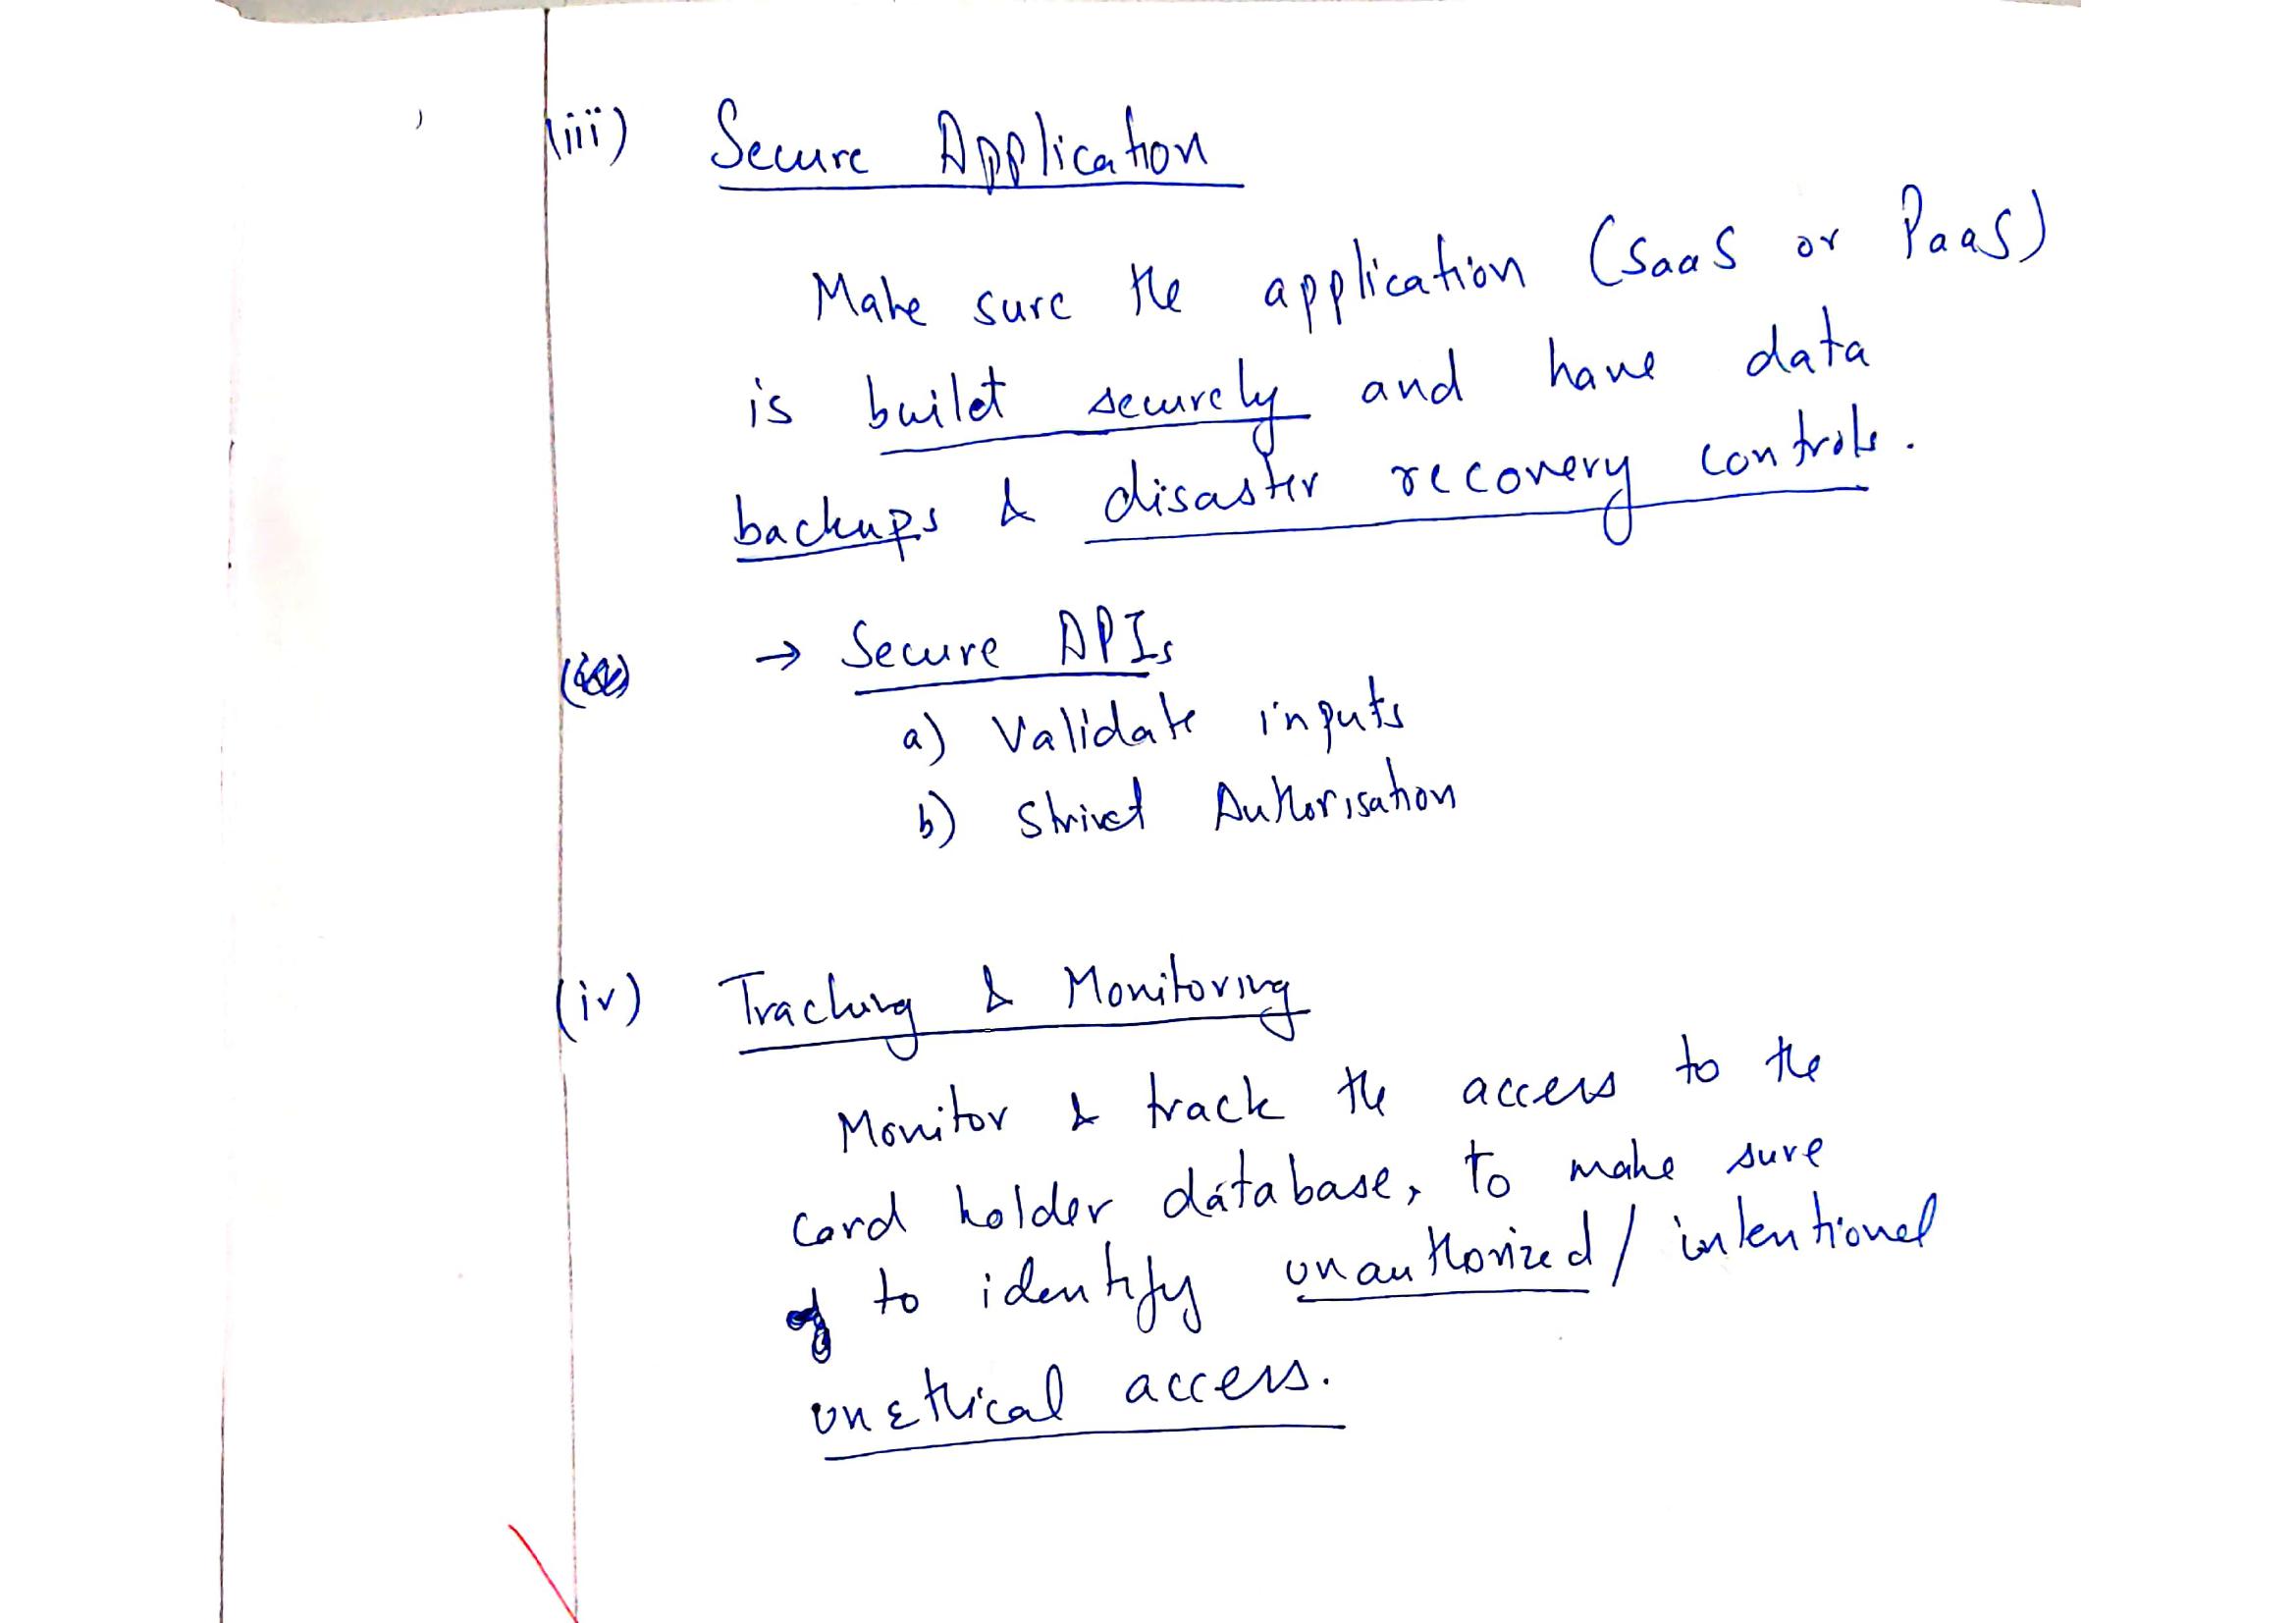 (iii) Secure Application
Make sure the application (SaaS or PaaS)
is build securely and have data
backups & disaster recovery controls.
→ Secure APIs
a) Validate inputs
b) Strict Authorisation
(iv) Tracking & Monitoring
Monitor & track the access to the
card holder database, to make sure
to identify unauthorized / intentional
unethical access.